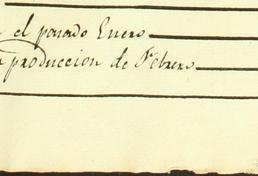 el pasado Enero
produccion de Febrero